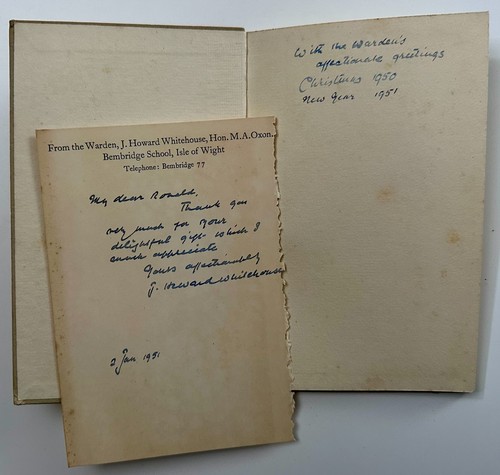 With the Warden's
affectionate greetings
Christmas 1950
New Year 1951
From the Warden, J. Howard Whitehouse, Hon. M.A.Oxon.
Bembridge School, Isle of Wight
Telephone: Bembridge 77
My dear Ronald,
Thank you
very much for your
delightful gift which I
much appreciate
Yours affectionately
J. Howard Whitehouse
2 Jan 1951